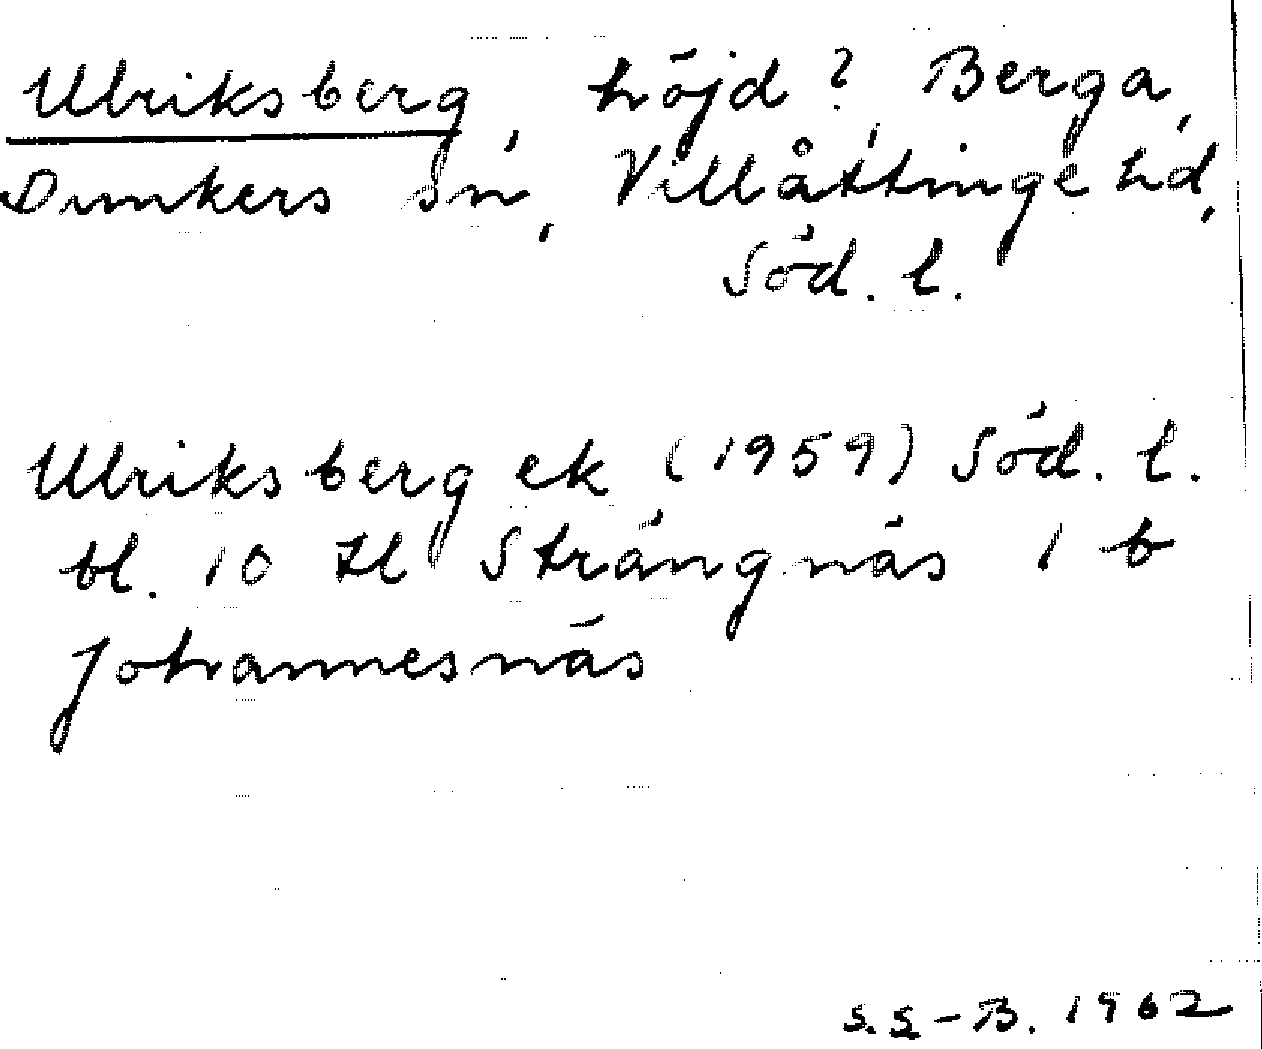 Ulriksberg, höjd? Berga,
Dunkers sn, Villåttinge hd,
Söd. l.
Ulriksberg ek (1959) Söd. l.
bl. 10 H Strängnäs 1 b
Johannesnäs
S.S-B. 1962